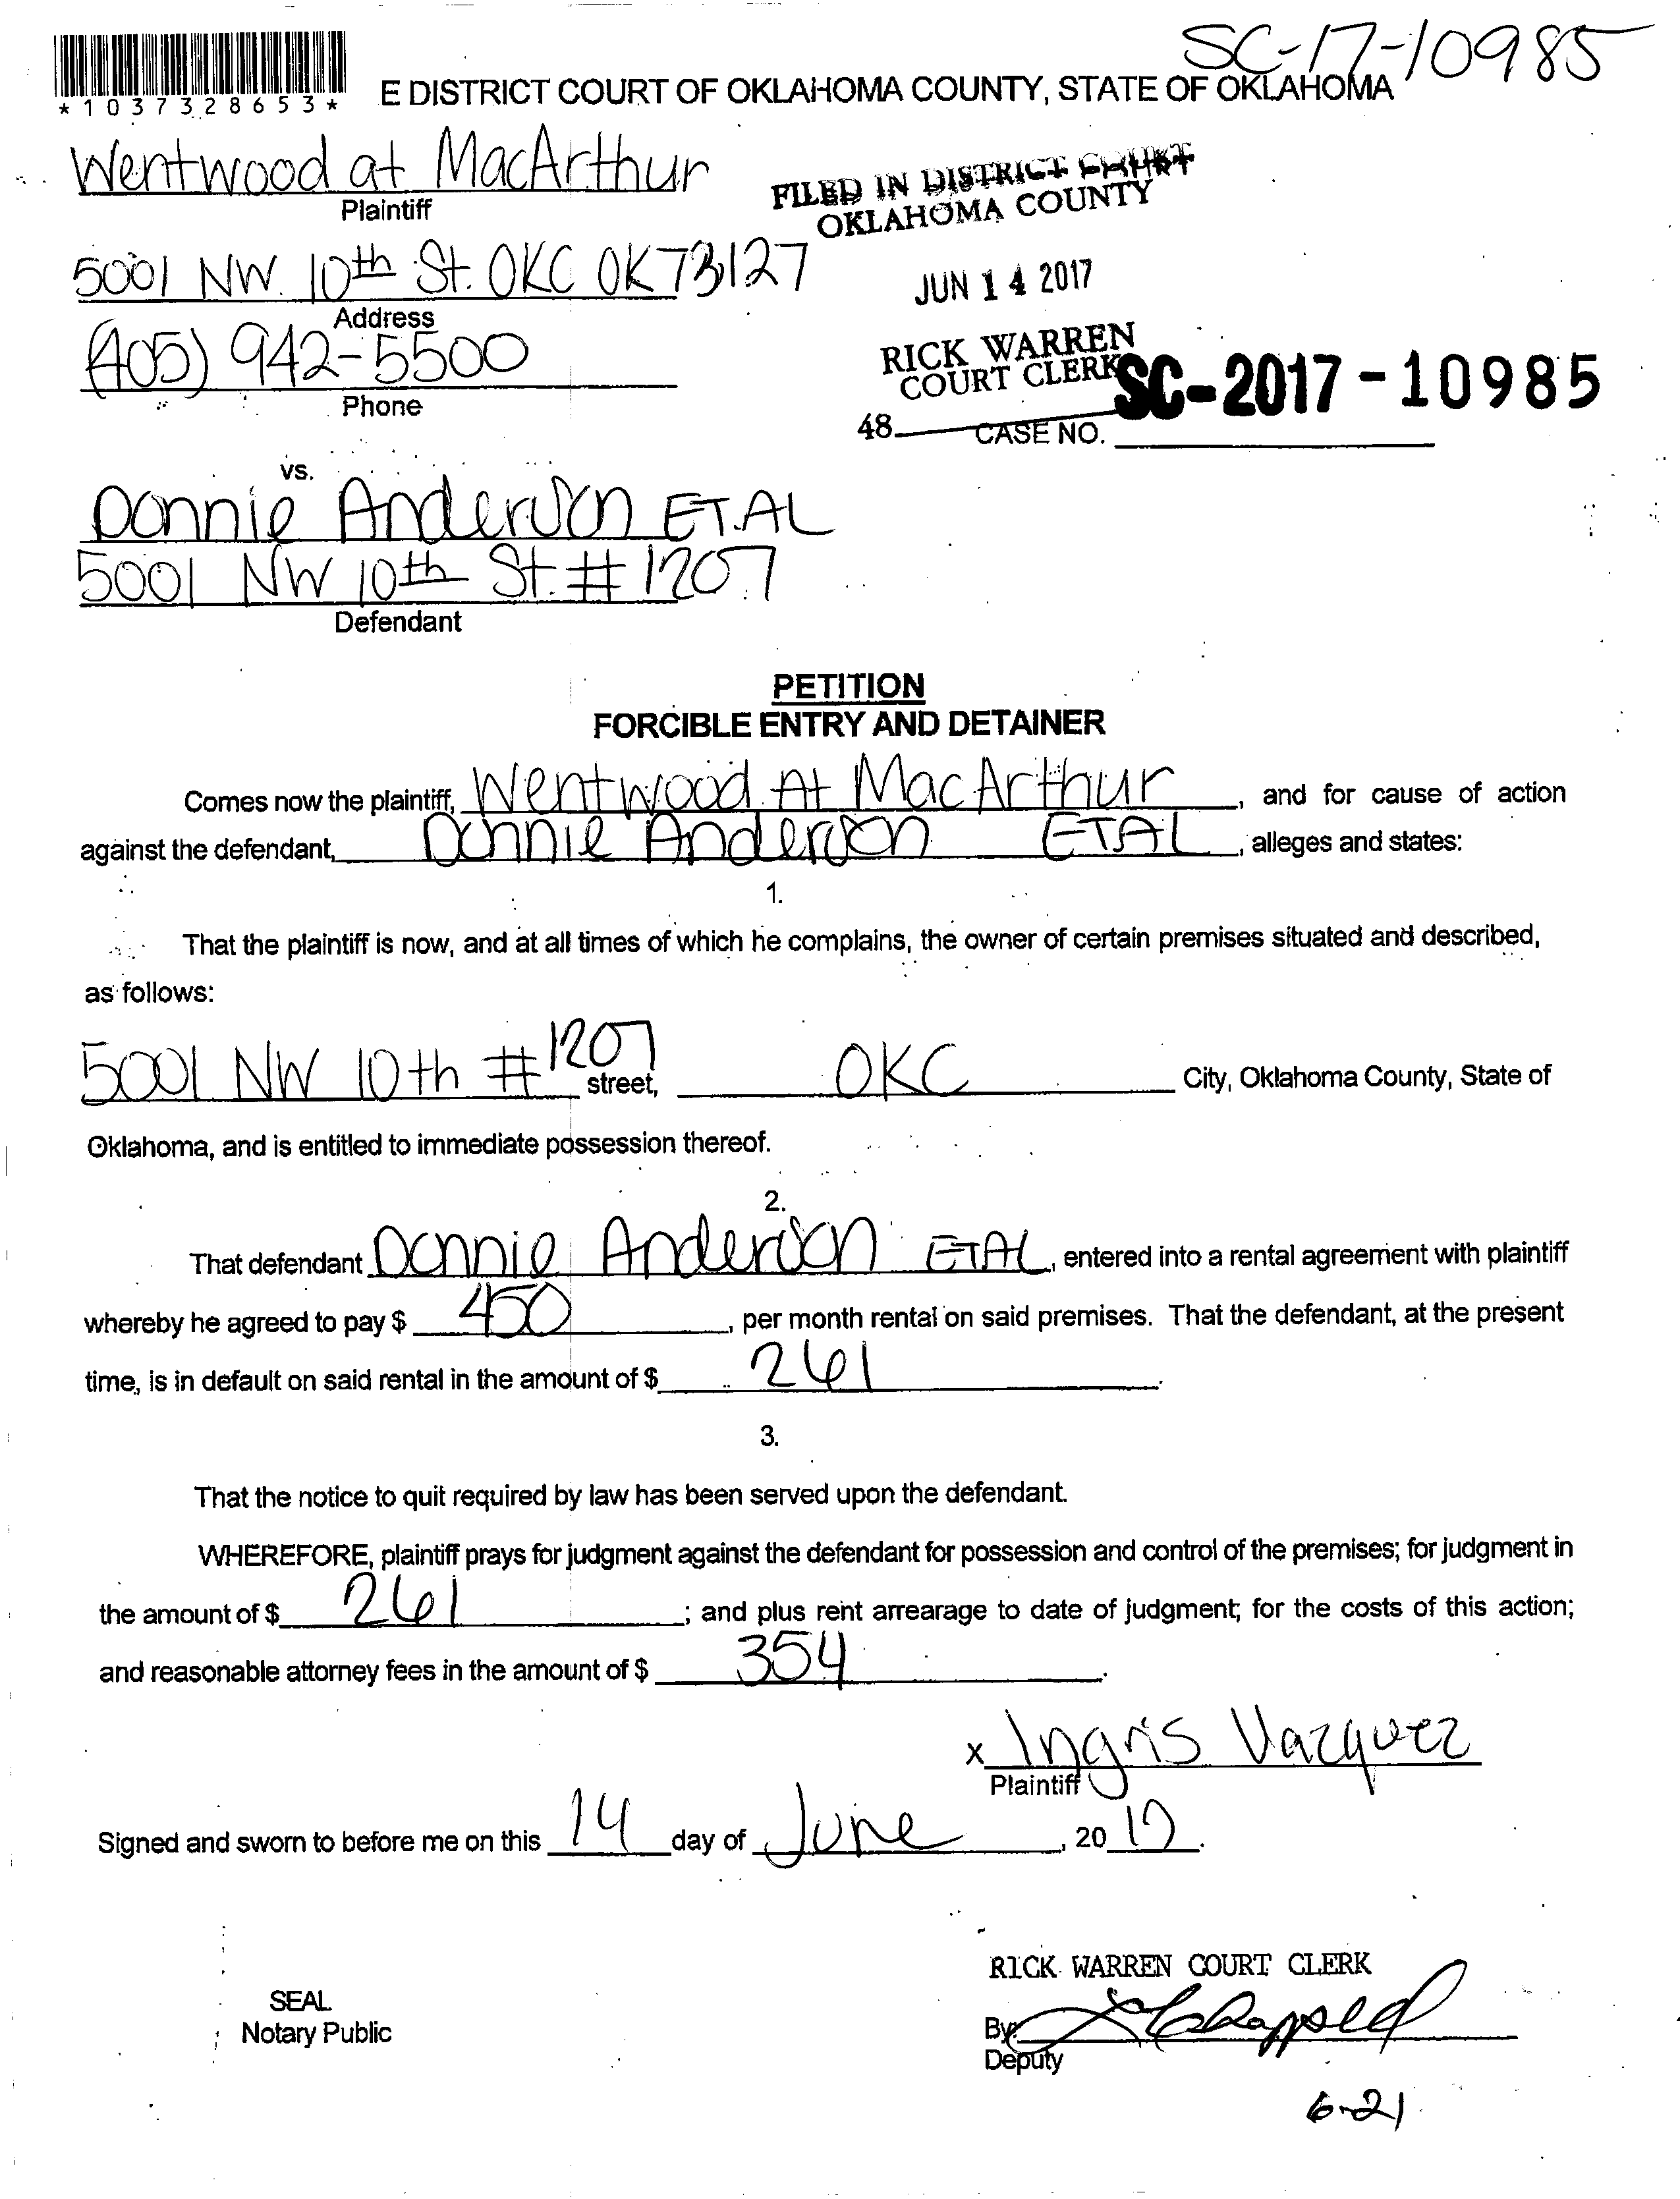 SC-17-10985
*1037328653*
E DISTRICT COURT OF OKLAHOMA COUNTY, STATE OF OKLAHOMA
Wentwood at MacArthur
Plaintiff
FILED IN DISTRICT COURT
OKLAHOMA COUNTY
5001 NW. 10th St. OKC OK 73127
Address
JUN 14 2017
(405) 942-5500
Phone
RICK WARREN
COURT CLERK
SC-2017-10985
48 CASE NO.
vs.
Donnie Anderson ET.AL
5001 NW 10th St. #1207
Defendant
PETITION
FORCIBLE ENTRY AND DETAINER
Comes now the plaintiff, Wentwood At MacArthur, and for cause of action
against the defendant, Donnie Anderson ETAL, alleges and states:
1.
That the plaintiff is now, and at all times of which he complains, the owner of certain premises situated and described,
as follows:
5001 NW 10th #1207 street, OKC City, Oklahoma County, State of
Oklahoma, and is entitled to immediate possession thereof.
2.
That defendant Donnie Anderson ETAL, entered into a rental agreement with plaintiff
whereby he agreed to pay $ 450, per month rental on said premises. That the defendant, at the present
time, is in default on said rental in the amount of $ 261.
3.
That the notice to quit required by law has been served upon the defendant.
WHEREFORE, plaintiff prays for judgment against the defendant for possession and control of the premises; for judgment in
the amount of $ 261; and plus rent arrearage to date of judgment; for the costs of this action;
and reasonable attorney fees in the amount of $ 354.
x Ingris Vazquez
Plaintiff
Signed and sworn to before me on this 14 day of June, 2017.
RICK WARREN COURT CLERK
SEAL
Notary Public
By:
Deputy
6-21